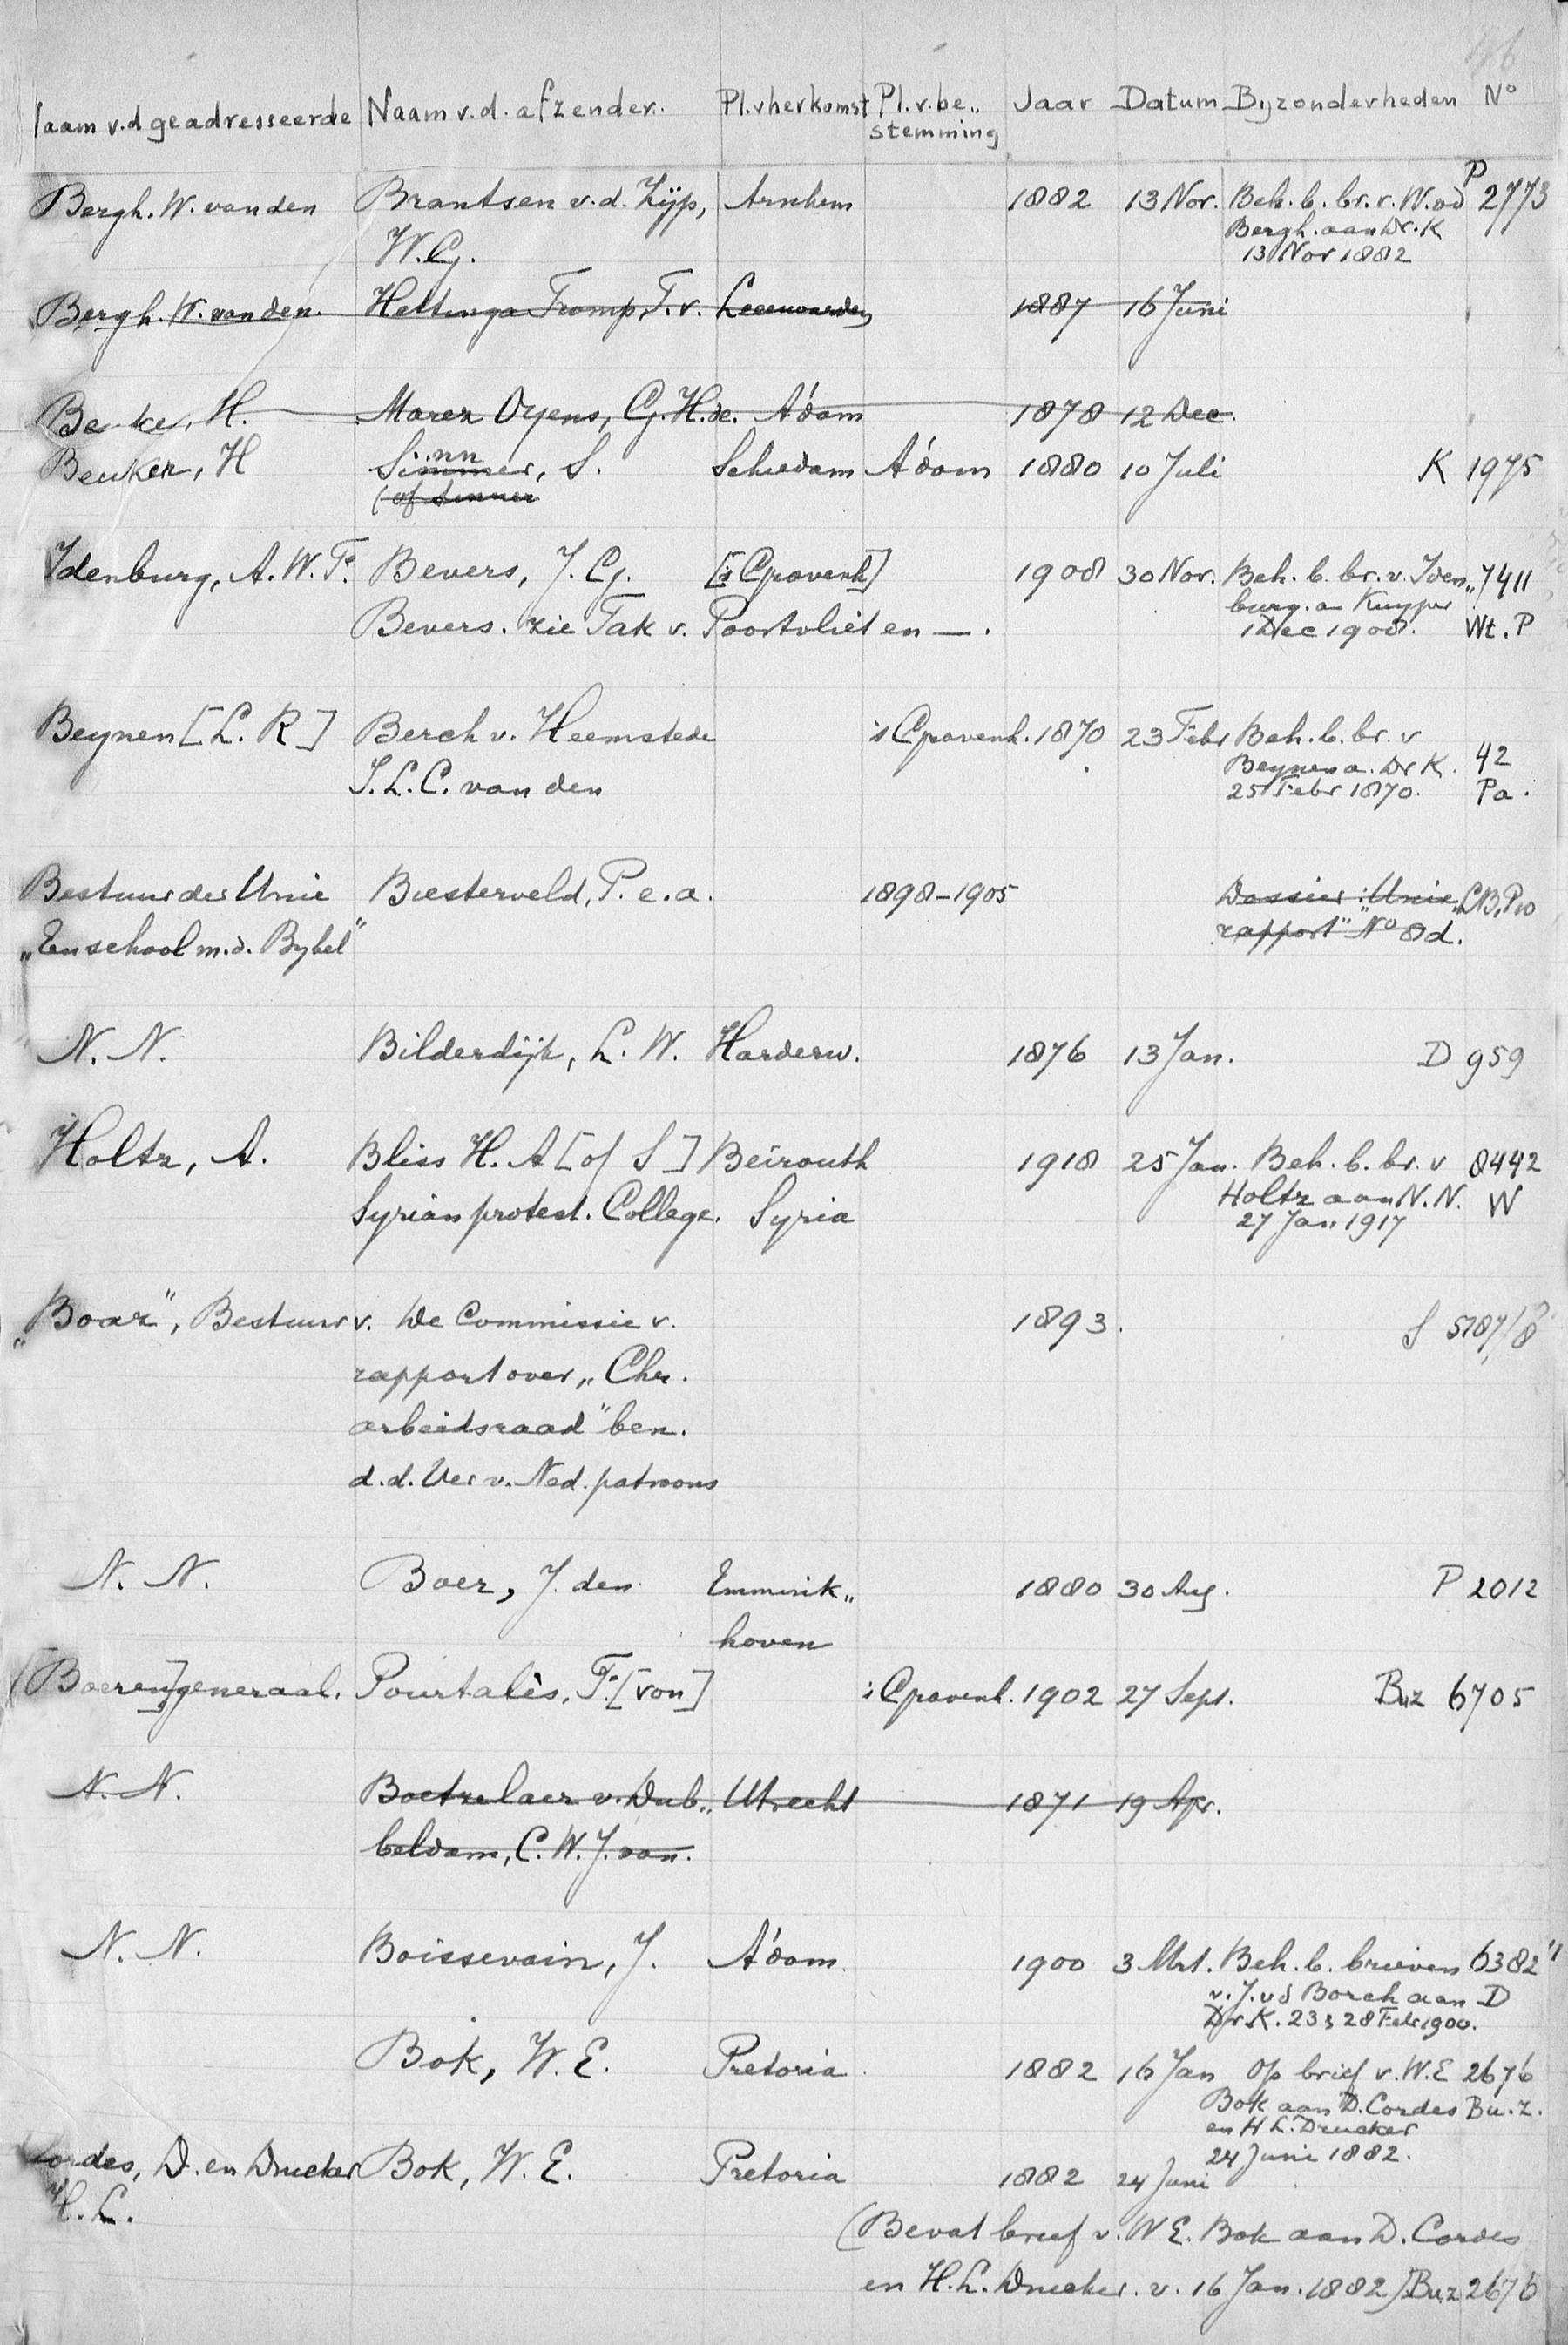 46
Naam v.d geadresseerde Naam v.d. afzender. Pl.v herkomst Pl.v.be„ Jaar Datum Byzonderheden No
stemming
Bergh. W. van den Brantsen v.d. Zÿp, Arnhem 1882 13 Nov. Beh. b. br. v. W. vd P 2773
W.G. Bergh. aan Dr. K
13 Nov 1882
Bergh. W. van den. Hettinga Tromp, T. v. Leeuwarden 1887 16 Juni
Be ke, H. Marez Oyens, G. H. de. A'dam 1878 12 Dec.
Beuker, H Simmer, S. Schiedam A'dam 1880 10 Juli K 1975
nn
(of Sinner
Idenburg, A. W. F. Bevers, J. G. ['s Gravenh] 1908 30 Nov. Beh. b. br. v. Iden„ 7411
burg. a Kuyper
Bevers. zie Tak v. Poortvliet en —. 1 Dec 1908. Wt. P
Beynen [L. R] Berch v. Heemstede 's Gravenh. 1870 23 Febr Beh. b. br. v
Beynen a. Dr K. 42
S. L. C. van den 25 Febr 1870. Pa.
Bestuur der Unie Biesterveld, P. e. a. 1898-1905 Dossier: „Unie LB, Pio
„Een school m. d. Bybel" rapport" No 8d.
N. N. Bilderdijk, L. W. Harderw. 1876 13 Jan. D 959
Holtz, A. Bliss H. A [of S] Beirouth 1918 25 Jan. Beh. b. br. v 8442
Syrian protest. College. Syria Holtz aan N. N. W
27 Jan 1917
„Boaz", Bestuur v. De Commissie v. 1893. S 5787/8
rapport over „Chr.
arbeidsraad" ben.
d. d. Ver v. Ned. patroons
N. N. Boer, J. den Emmink„ 1880 30 Aug. P 2012
hoven
[Boeren]generaal. Pourtalès, F. [von] 's Gravenh. 1902 27 Sept. Buz 6705
N. N. Boetzelaer v. Dub„ Utrecht 1871 19 Apr.
beldam, C. W. J. van.
N. N. Boissevain, J. A'dam. 1900 3 Mrt. Beh. b. brieven 6382
v. J. v d Borch aan D
Dr. K. 23 & 28 Febr 1900.
Bok, W. E. Pretoria 1882 16 Jan Op brief v. W. E 2676
Bok aan D. Cordes Bu. z.
en H L. Drucker
24 Juni 1882.
Cordes, D. en Drucker Bok, W. E. Pretoria 1882 24 Juni
H. L.
(Bevat brief v. W E. Bok aan D. Cordes
en H. L. Drucker. v. 16 Jan. 1882) Buz 2676